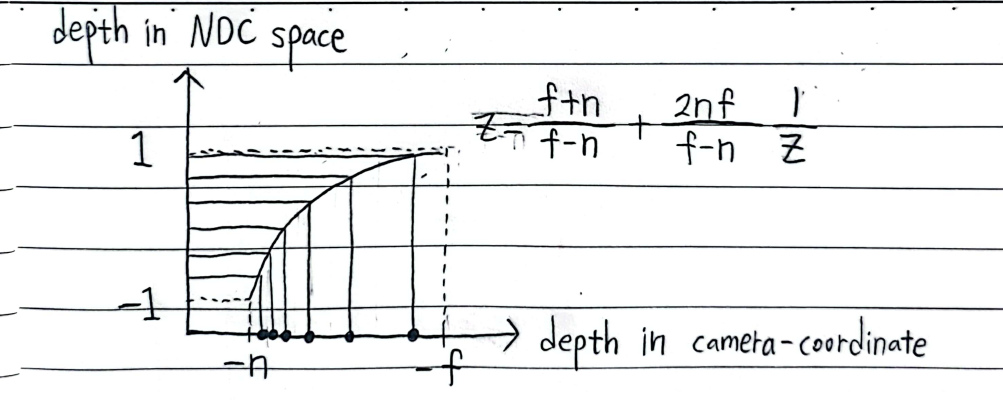 depth in NDC space
1
z = \frac{f+n}{f-n} + \frac{2nf}{f-n} \frac{1}{z}
-1
depth in camera-coordinate
-n -f